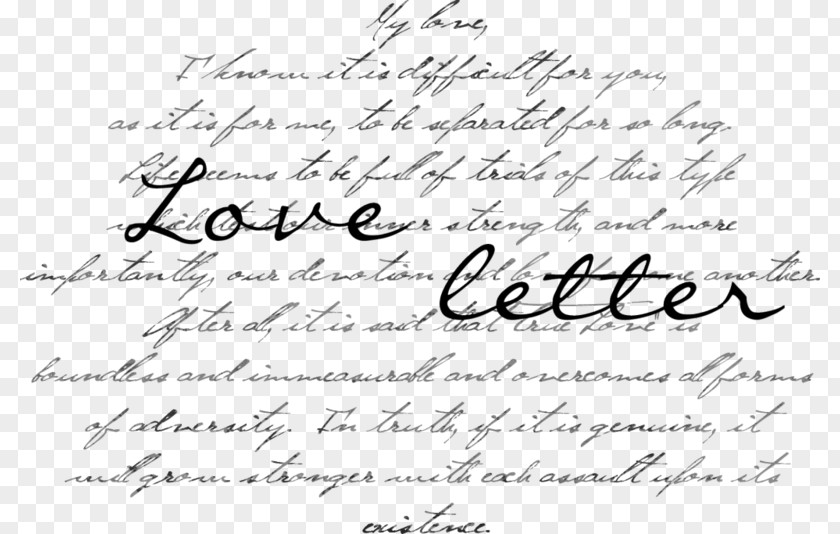 My love,
I know it is difficult for you,
as it is for me, to be separated for so long.
Life seems to be full of trials of this type
Love
which test our inner strength, and more
importantly, our devotion and love for one another.
letter
After all, it is said that true Love is
boundless and immeasurable and overcomes all forms
of adversity. In truth, if it is genuine, it
will grow stronger with each assault upon its
existence.